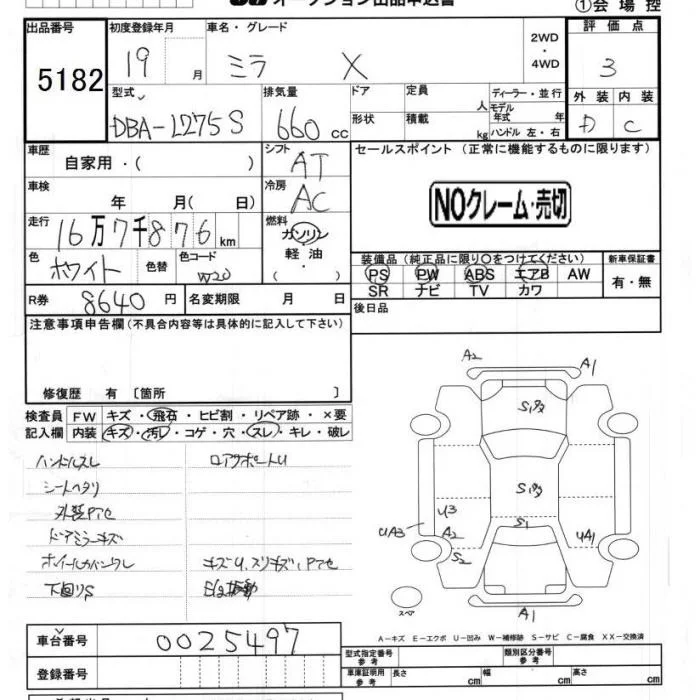 オークション出品申込書
①会場控
出品番号 初度登録年月 車名・グレード 2WD・4WD 評価点
5182 19 月 ミラ X 3
型式 排気量 ドア 定員 人 ディーラー・並行 外装 内装
DBA-L275S 660 cc 形状 積載 kg モデル年式 年 ハンドル 左・右 D C
車歴 自家用・( ) シフト AT セールスポイント(正常に機能するものに限ります)
車検 年 月( 日) 冷房 AC
NOクレーム・売切
走行 16万7千876km 燃料 ガソリン・軽油・( )
色 ホワイト 色替 色コード W20 装備品(純正品に限り○をつけてください) 新車保証書
PS PW ABS エアB AW 有・無
SR ナビ TV カワ
R券 8640円 名変期限 月 日 後日品
注意事項申告欄(不具合内容等は具体的に記入して下さい)
修復歴 有〔箇所 〕
検査員 FW キズ・飛石・ヒビ割・リペア跡・×要
記入欄 内装 キズ・汚レ・コゲ・穴・スレ・キレ・破レ
ハンドルスレ ロアサポートU
シートヘタリ
外装Pアセ
ドアミラーキズ
ホイールカバーワレ キズU,スリキズ,Pアセ
下回りS
A2 A1
S1
U3 UA3 A2 S2 UA1
スペア A1
A-キズ E-エクボ U-凹み W-補修跡 S-サビ C-腐食 XX-交換済
車台番号 0025497
型式指定番号 参考 類別区分番号 参考
登録番号 車庫証明用 参考 長さ cm 幅 cm 高さ cm